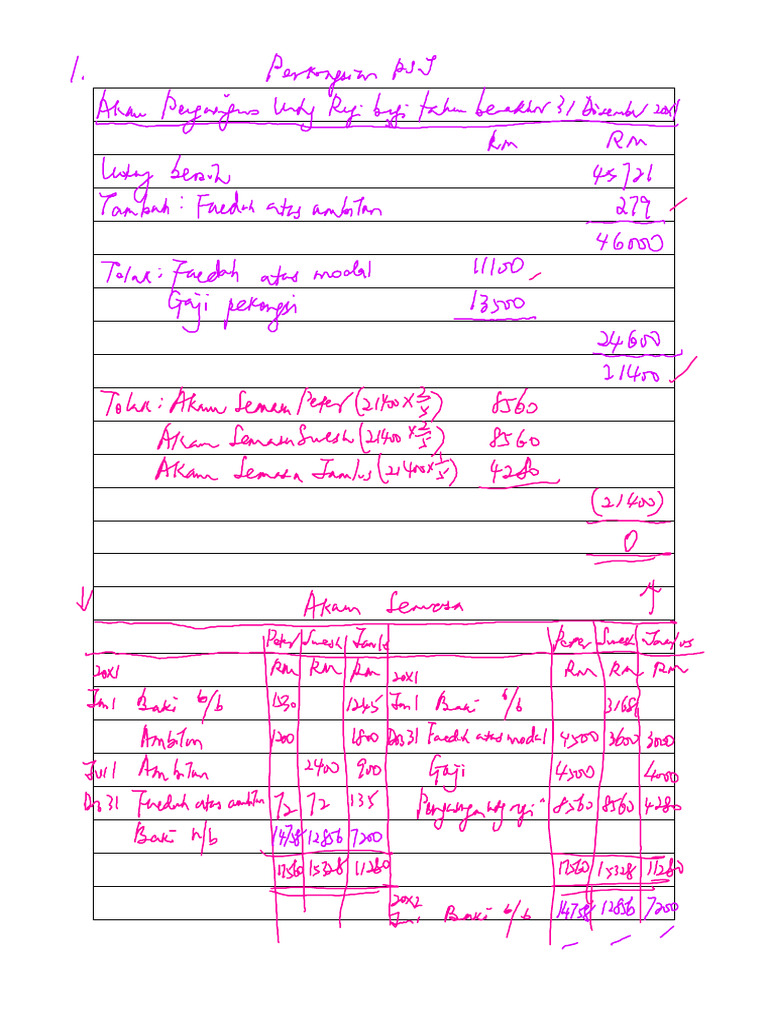 1. Perkongsian PSJ
Akaun Pengasingan Untung Rugi bagi tahun berakhir 31 Disember 20x1
RM RM
Untung bersih 45721
Tambah: Faedah atas ambilan 279
46000
Tolak: Faedah atas modal 11100
Gaji pekongsi 13500
24600
21400
Tolak: Akaun Semasa Peter (21400 x 2/5) 8560
Akaun Semasa Suresh (21400 x 2/5) 8560
Akaun Semasa Jamlus (21400 x 1/5) 4280
(21400)
0
↓ Akaun Semasa ↑
Peter Suresh Jamlus Peter Suresh Jamlus
20x1 RM RM RM 20x1 RM RM RM
Jan 1 Baki b/b 1530 1265 Jan 1 Baki b/b 3168
Ambilan 1200 1800 Dis 31 Faedah atas modal 4500 3600 3000
Jul 1 Ambilan 2400 900 Gaji 4500 4000
Dis 31 Faedah atas ambilan 72 72 135 Pengasingan utg rugi 8560 8560 4280
Baki h/b 14758 12856 7200
17560 15328 11280 17560 15328 11280
20x2
Jan 1 Baki b/b 14758 12856 7200